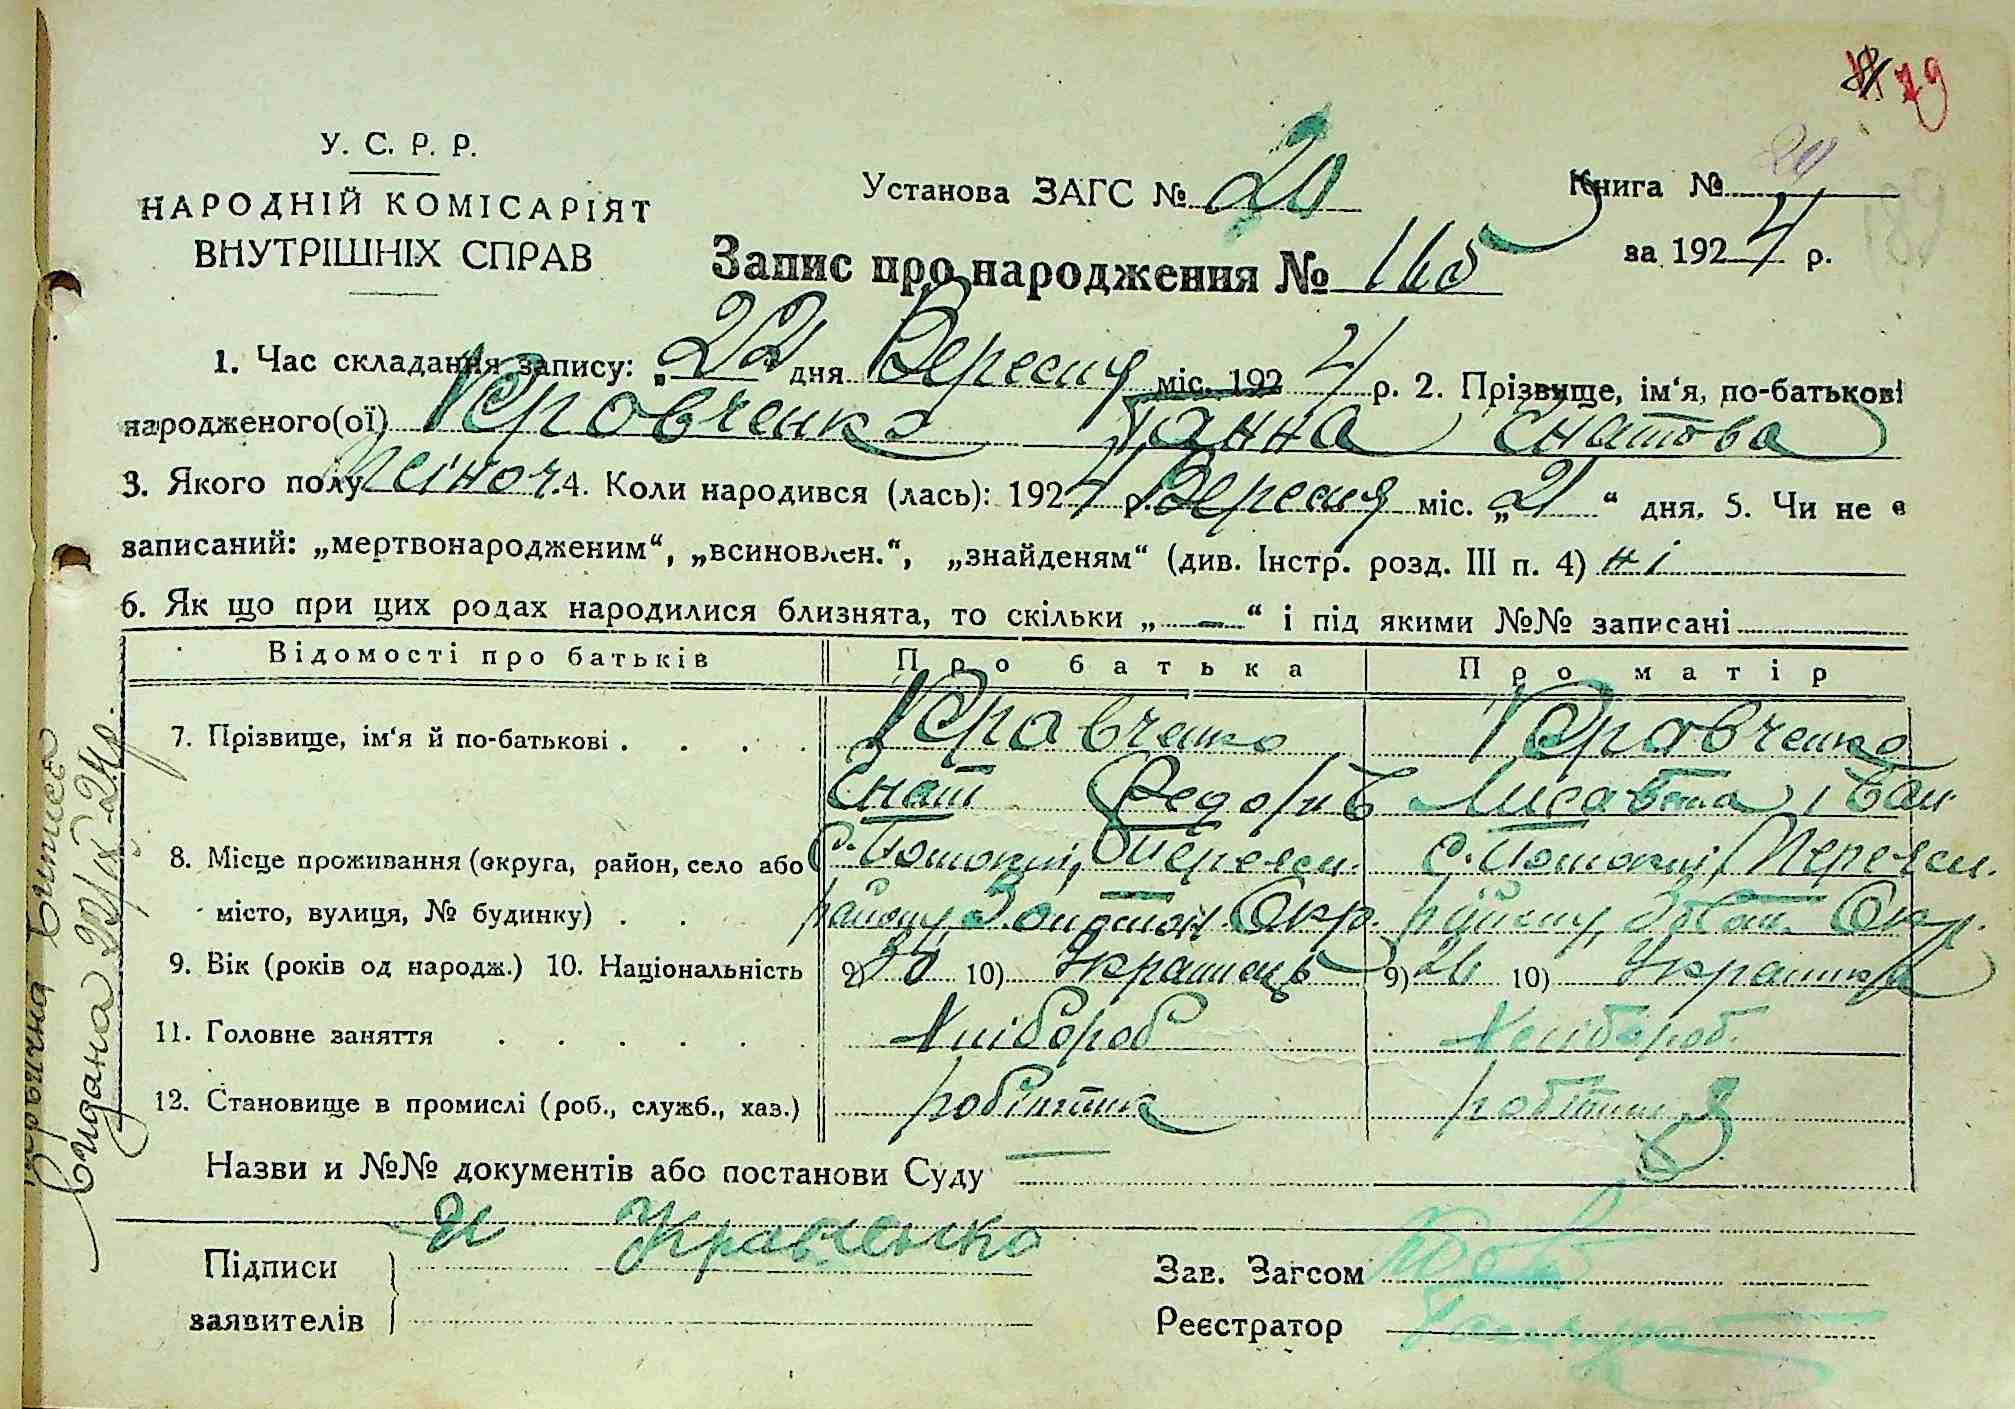 79
У. С. Р. Р.
НАРОДНІЙ КОМІСАРІЯТ
ВНУТРІШНІХ СПРАВ
Установа ЗАГС № 20
Книга №
за 1924 р.
Запис про народження № 165
1. Час складання запису: „22" дня Вересня міс. 1924 р. 2. Прізвище, ім'я, по-батькові
народженого(ої) Кравченко Ганна Єнатова
3. Якого полу жіноч. 4. Коли народився (лась): 1924 р. Вересня міс. „21" дня. 5. Чи не є
записаний: „мертвонародженим", „всиновлен.", „знайденям" (див. Інстр. розд. III п. 4) ні
6. Як що при цих родах народилися близнята, то скільки „ — " і під якими №№ записані
Відомості про батьків Про батька Про матір
7. Прізвище, ім'я й по-батькові . . . . Кравченко Кравченко
Єнат Федорів Лисавета Іван
8. Місце проживання (округа, район, село або с. Потоки, с. Потоки,
місто, вулиця, № будинку) . . району, Золотон. Окр. району, Золот. Окр.
9. Вік (років од народж.) 10. Національність 9) 30 10) Українець 9) 26 10) Українка
11. Головне заняття . . . . . . Хлібороб Хлібороб.
12. Становище в промислі (роб., служб., хаз.) робітник робітниця
Назви и №№ документів або постанови Суду —
Підписи
заявителів
И Кравченко
Зав. Загсом
Реєстратор
Виписъ
видана